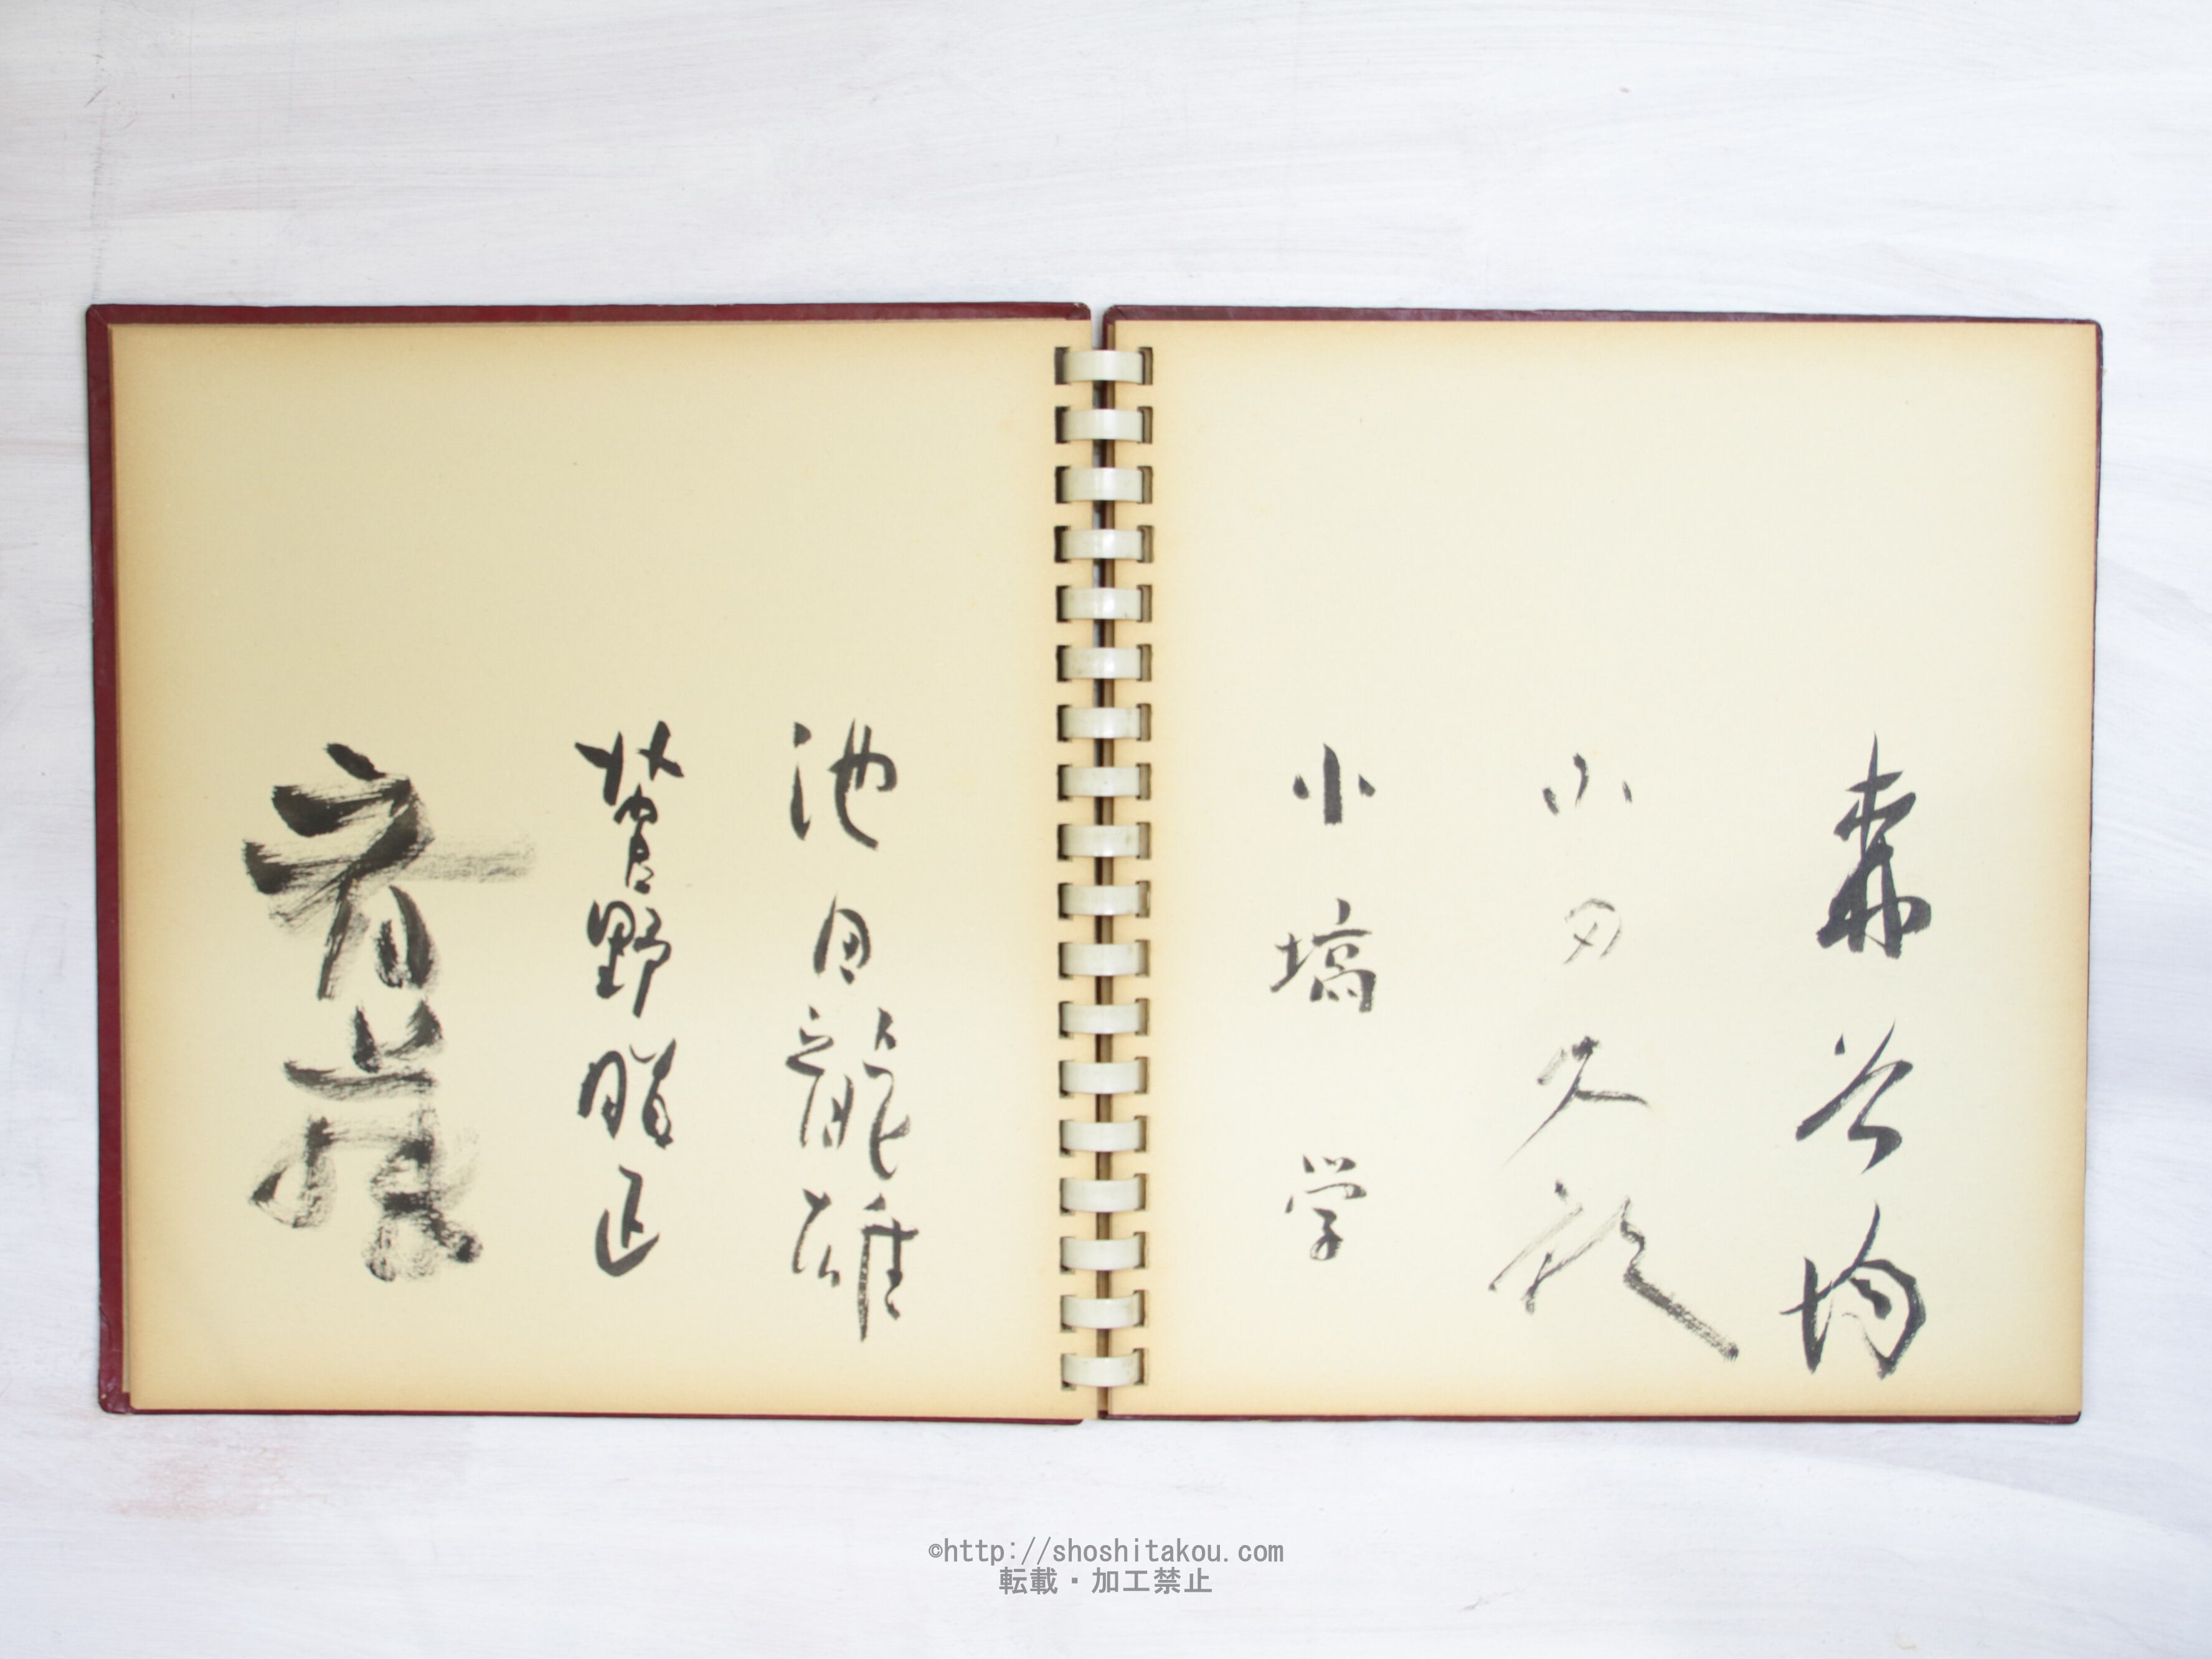 森谷均
小田久郎
小塙学
池田龍雄
菅野勝正
©http://shoshitakou.com
転載・加工禁止